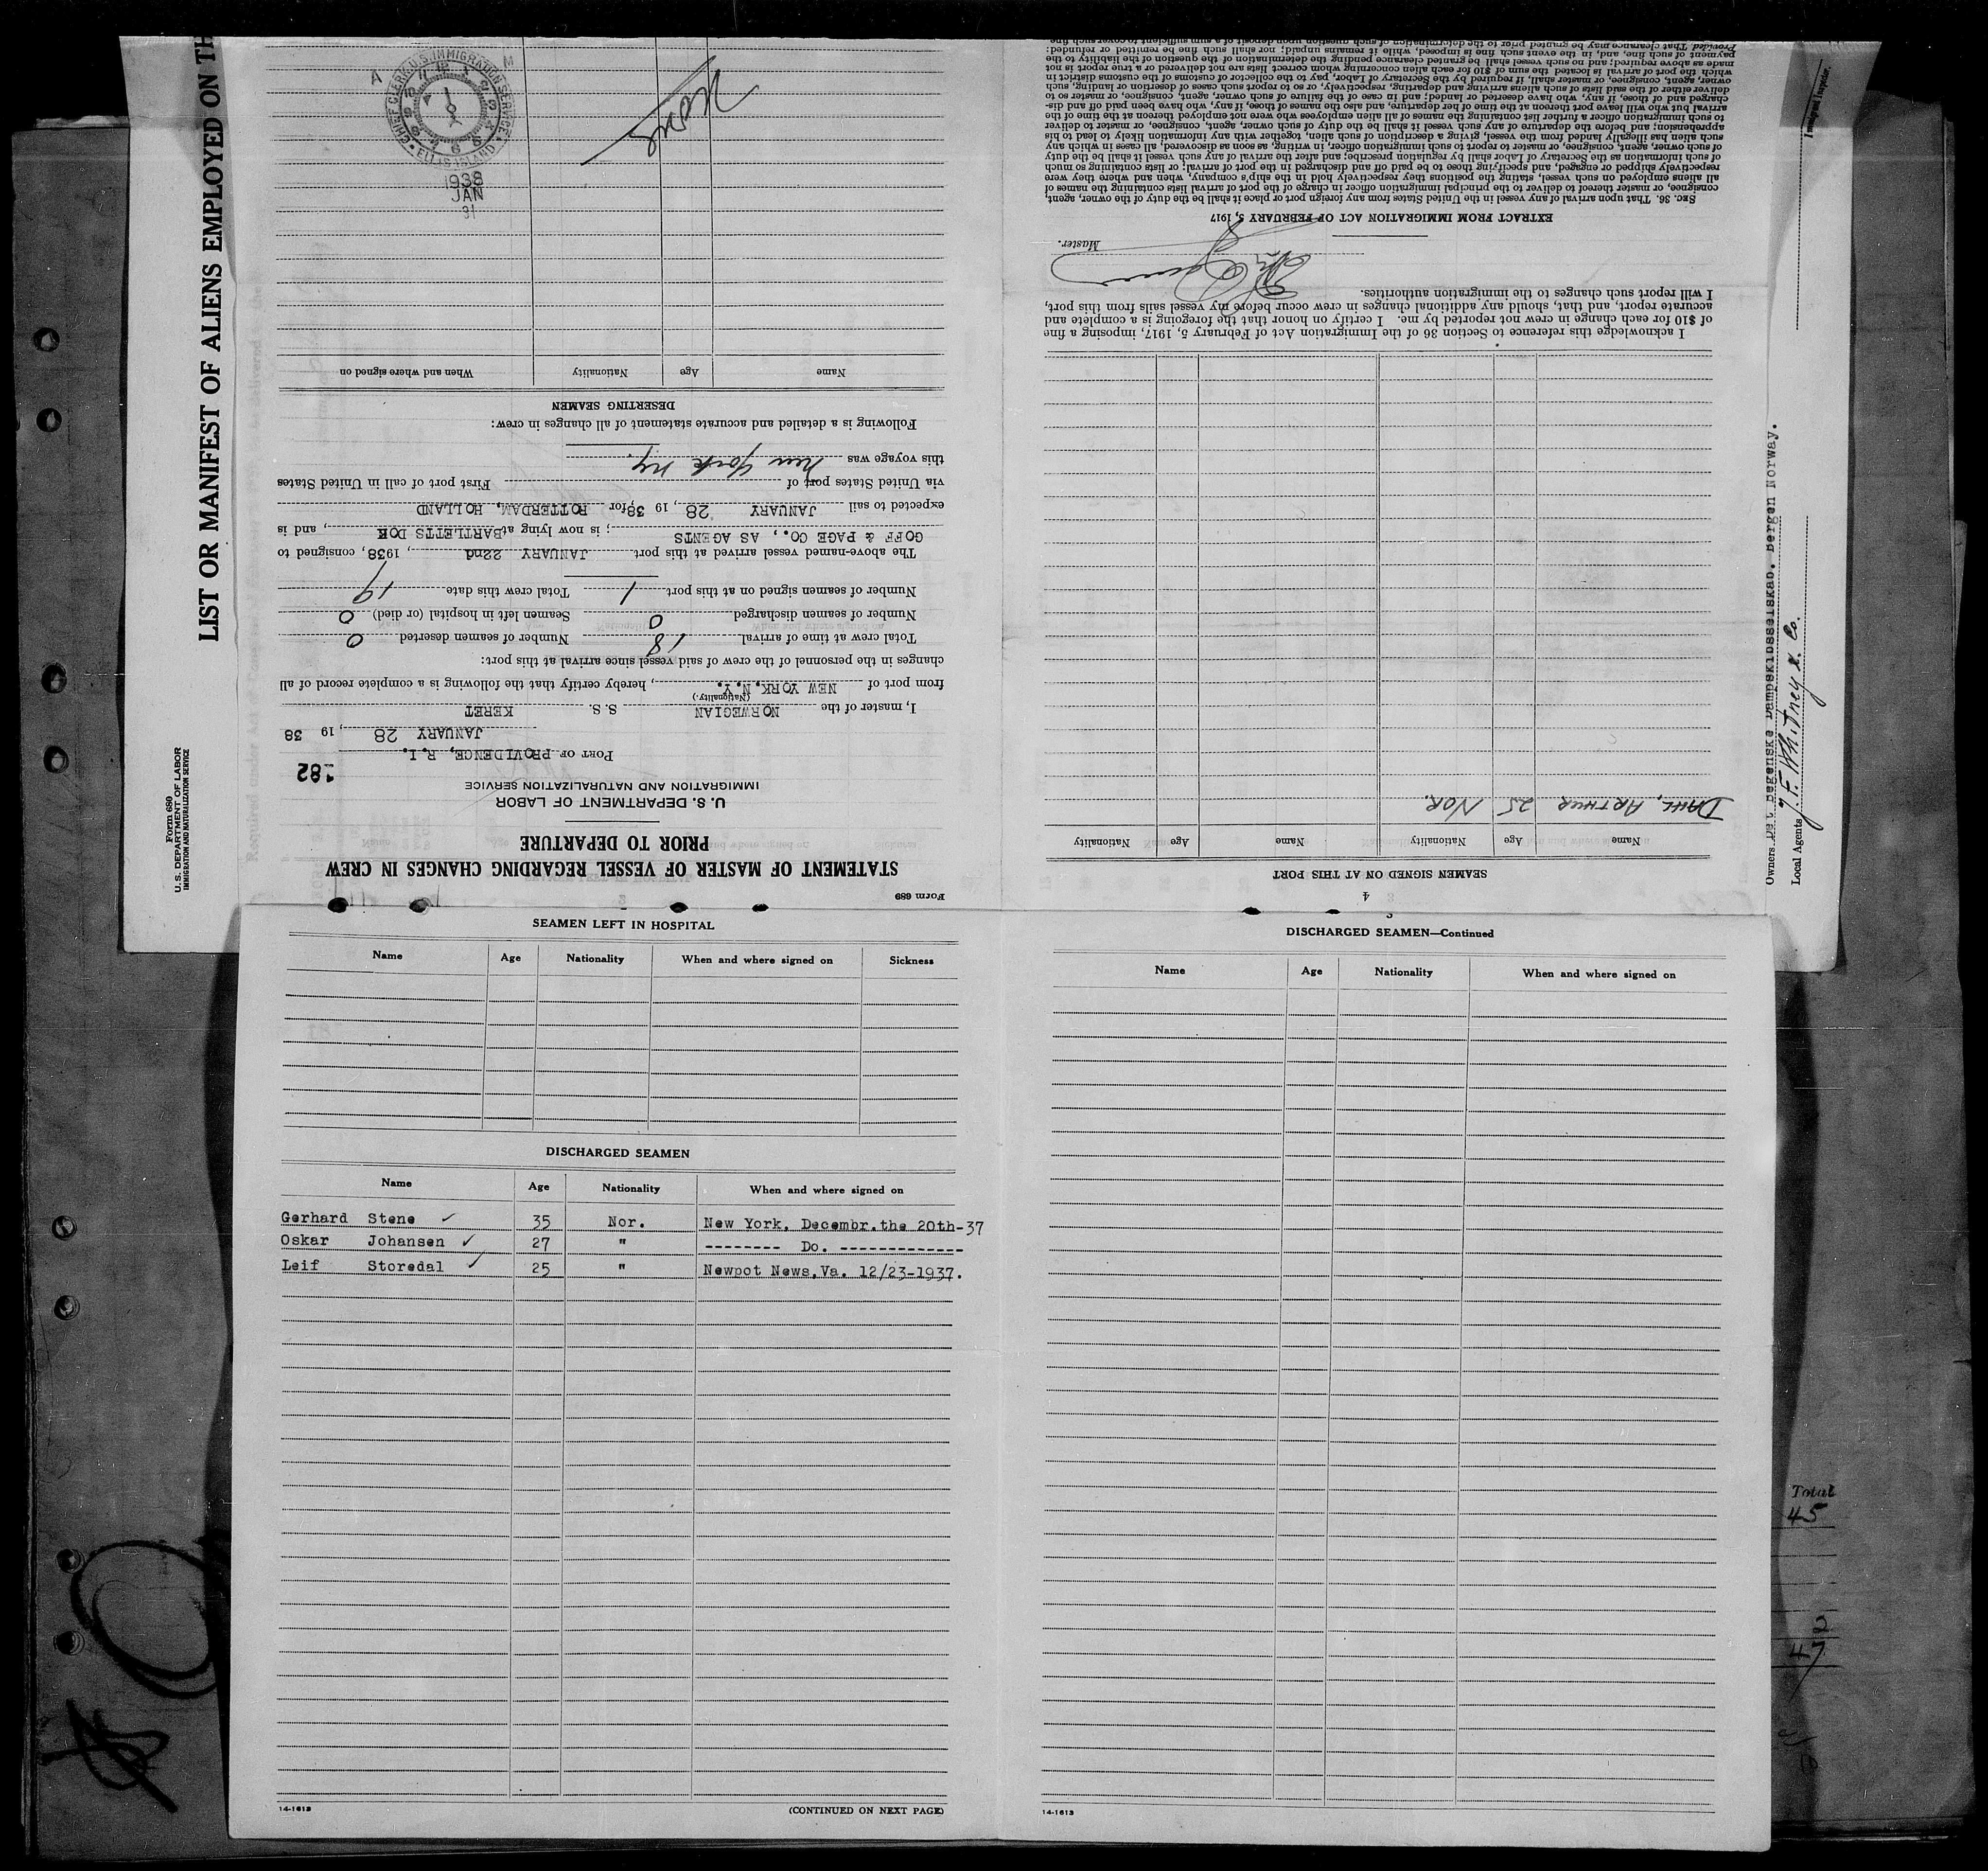 LIST OR MANIFEST OF ALIENS EMPLOYED ON TH
Form 680
U. S. DEPARTMENT OF LABOR
IMMIGRATION AND NATURALIZATION SERVICE
Form 689
STATEMENT OF MASTER OF VESSEL REGARDING CHANGES IN CREW
PRIOR TO DEPARTURE
U. S. DEPARTMENT OF LABOR
IMMIGRATION AND NATURALIZATION SERVICE
182
PORT OF PROVIDENCE, R.I.
JANUARY 28, 19 38
I, master of the NORWEGIAN S. S. KERET
(Nationality.)
from port of NEW YORK.N.Y., hereby certify that the following is a complete record of all
changes in the personnel of the crew of said vessel since arrival at this port:
Total crew at time of arrival 18 Number of seamen deserted 0
Number of seamen discharged 0 Seamen left in hospital (or died) 0
Number of seamen signed on at this port 1 Total crew this date 19
The above-named vessel arrived at this port JANUARY 22nd, 1938, consigned to
GOFF & PAGE CO., AS AGENTS; is now lying at BARTLETTS DOK, and is
expected to sail JANUARY 28, 19 38, for ROTTERDAM, HOLLAND
via United States port of First port of call in United States
this voyage was New York N.Y.
Following is a detailed and accurate statement of all changes in crew:
DESERTING SEAMEN
Name Age Nationality When and where signed on
None
CHIEF CLERK U.S. IMMIGRATION SERVICE
ELLIS ISLAND
A M
1938
JAN
31
4
SEAMEN SIGNED ON AT THIS PORT
Name Age Nationality Name Age Nationality
DAHL, ARTHUR 25 NOR.
I acknowledge this reference to Section 36 of the Immigration Act of February 5, 1917, imposing a fine
of $10 for each change in crew not reported by me. I certify on honor that the foregoing is a complete and
accurate report, and that, should any additional changes in crew occur before my vessel sails from this port,
I will report such changes to the immigration authorities.
Master.
EXTRACT FROM IMMIGRATION ACT OF FEBRUARY 5, 1917
SEC. 36. That upon arrival of any vessel in the United States from any foreign port or place it shall be the duty of the owner, agent,
consignee, or master thereof to deliver to the principal immigration officer in charge of the port of arrival lists containing the names of
all aliens employed on such vessel, stating the positions they respectively hold in the ship's company, when and where they were
respectively shipped or engaged, and specifying those to be paid off and discharged in the port of arrival; or lists containing so much
of such information as the Secretary of Labor shall by regulation prescribe; and after the arrival of any such vessel it shall be the duty
of such owner, agent, consignee, or master to report to such immigration officer, in writing, as soon as discovered, all cases in which any
such alien has illegally landed from the vessel, giving a description of such alien, together with any information likely to lead to his
apprehension; and before the departure of any such vessel it shall be the duty of such owner, agent, consignee, or master to deliver
to such immigration officer a further list containing the names of all alien employees who were not employed thereon at the time of the
arrival but who will leave port thereon at the time of her departure, and also the names of those, if any, who have been paid off and dis-
charged and of those, if any, who have deserted or landed; and in case of the failure of such owner, agent, consignee, or master so to
deliver either of the said lists of such aliens arriving and departing, respectively, or so to report such cases of desertion or landing, such
owner, agent, consignee, or master shall, if required by the Secretary of Labor, pay to the collector of customs of the customs district in
which the port of arrival is located the sum of $10 for each alien concerning whom correct lists are not delivered or a true report is not
made as above required; and no such vessel shall be granted clearance pending the determination of the question of the liability to the
payment of such fine, and, in the event such fine is imposed, while it remains unpaid; nor shall such fine be remitted or refunded:
Provided, That clearance may be granted prior to the determination of such question upon deposit of a sum sufficient to cover such fine
Owners Det Begenske Dampskibsselskab. Bergen Norway.
Local Agents J. F. Whitney & Co.
Immigrant Inspector.
SEAMEN LEFT IN HOSPITAL
Name Age Nationality When and where signed on Sickness
DISCHARGED SEAMEN
Name Age Nationality When and where signed on
Gerhard Stene ✓ 35 Nor. New York. Decembr.the 20th-37
Oskar Johansen ✓ 27 " -------- Do. -------------
Leif Storedal ✓ 25 " Newpot News.Va. 12/23-1937.
14-1613
(CONTINUED ON NEXT PAGE)
3
DISCHARGED SEAMEN—Continued
Name Age Nationality When and where signed on
14-1613
Total
45